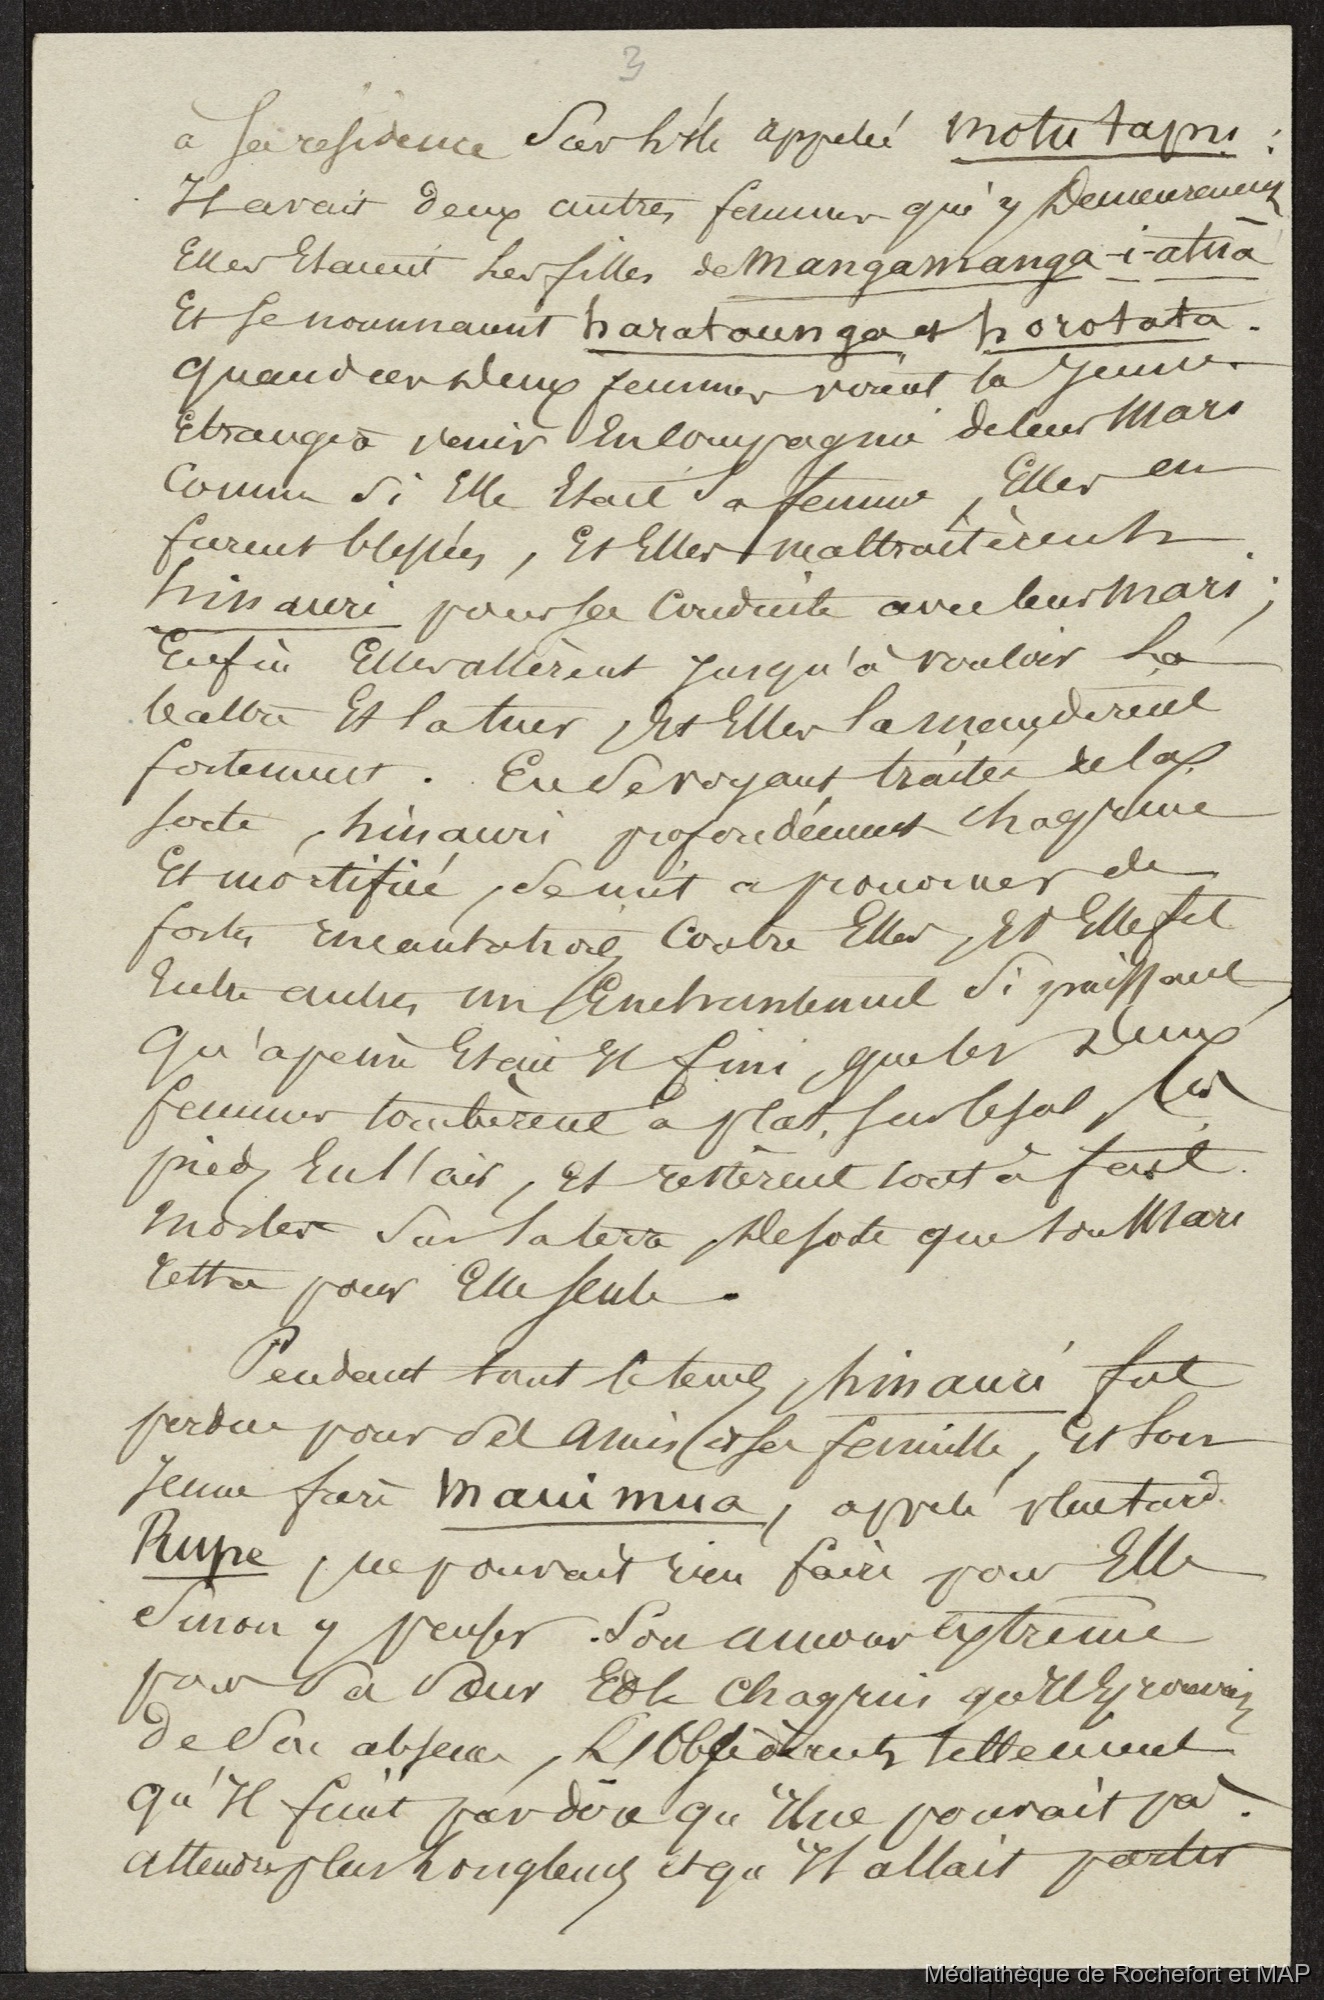 3
à sa résidence sur l'île appelée motu tapu :
Il avait deux autres femmes qui y demeuraient
Elles Etaient les filles de mangamanga-i-atua
Et se nommaient haratounga et horotata.
quand ces deux femmes virent la jeune
Etrangère venir En compagnie de leur Mari
Comme si Elle Etait sa femme, Elles en
furent blessées, Et Elles maltraitèrent
hinauri pour sa Conduite avec leur Mari ;
Enfin Elles allèrent jusqu'à vouloir la
battre Et la tuer, Et Elles la maudirent
fortement. En se voyant traitée de la
sorte, hinauri profondément chagrine
Et mortifiée, se mit a prononcer de
fortes incantations Contre Elles, Et Elle fit
Entre autres un Enchantement si puissant
qu'a peine Etait Il fini, que les deux
femmes tombèrent a plat sur le sol, les
pieds En l'air, Et restèrent tout à fait
Mortes sur la terre, de sorte que son Mari
resta pour Elle seule.
Pendant tout le tems, hinauri fut
perdue pour ses Amis et sa famille, Et son
jeune frère maui mua, appelé plus tard
Rupe, ne pouvait rien faire pour Elle
Sinon y penser. Son amour extrême
pour sa sœur Et le chagrin qu'Il Eprouvait
de son absence, L'Obsédèrent tellement
qu'Il finit par dire qu'Il ne pouvait pas
attendre plus longtems et qu'Il allait partir
Médiathèque de Rochefort et MAP